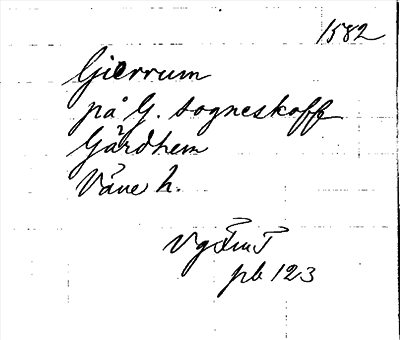 1582
Gierrum
på G. sogneskoffe
Gärdhem
Väne h.
VgFmT
pb 123